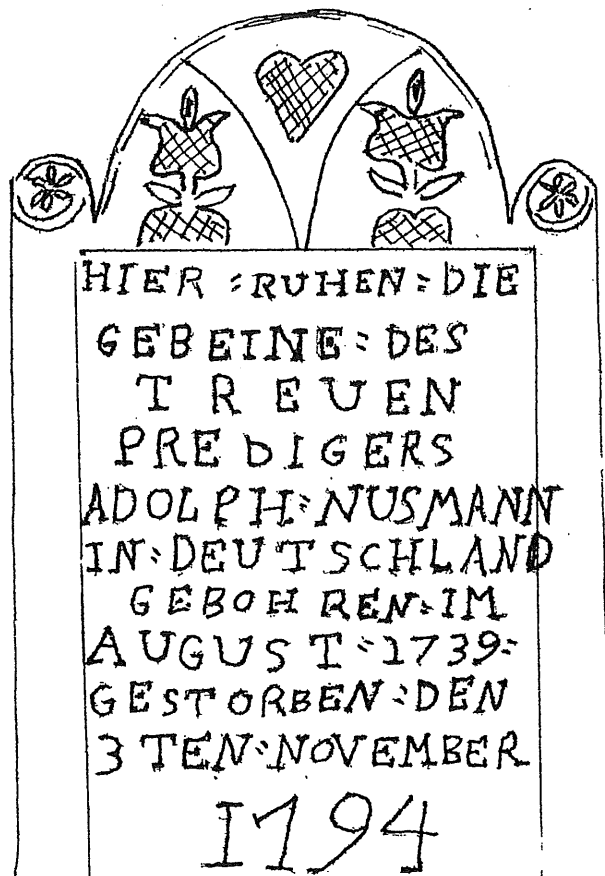 HIER = RUHEN = DIE
GEBEINE = DES
TREUEN
PREDIGERS
ADOLPH = NUSMANN
IN = DEUTSCHLAND
GEBOHREN = IM
AUGUST = 1739 =
GESTORBEN = DEN
3 TEN = NOVEMBER
1794